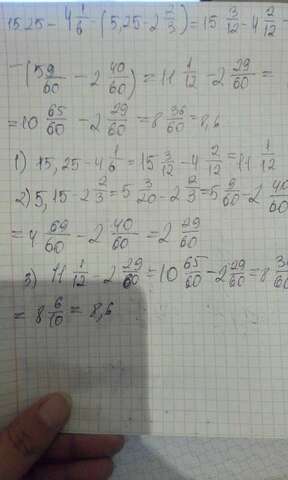 15,25 - 4 1/6 - (5,25 - 2 2/3) = 15 3/12 - 4 2/12 -
- (5 9/60 - 2 40/60) = 11 1/12 - 2 29/60 =
= 10 65/60 - 2 29/60 = 8 36/60 = 8,6
1) 15,25 - 4 1/6 = 15 3/12 - 4 2/12 = 11 1/12
2) 5,15 - 2 2/3 = 5 3/20 - 2 2/3 = 5 9/60 - 2 40/60
= 4 69/60 - 2 40/60 = 2 29/60
3) 11 1/12 - 2 29/60 = 10 65/60 - 2 29/60 = 8 3
= 8 6/10 = 8,6